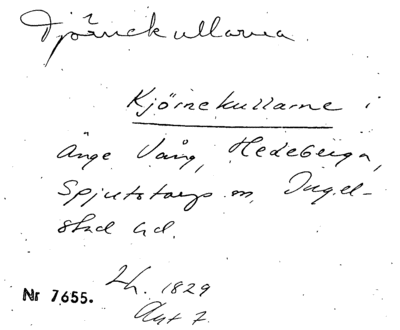 Tjörnekullarna
Kjörnekullarne i
Änge Vång, Hedeberga,
Spjutstorps sn, Ingel-
stad hd.
Lh. 1829
Nr 7655.
Akt 7.